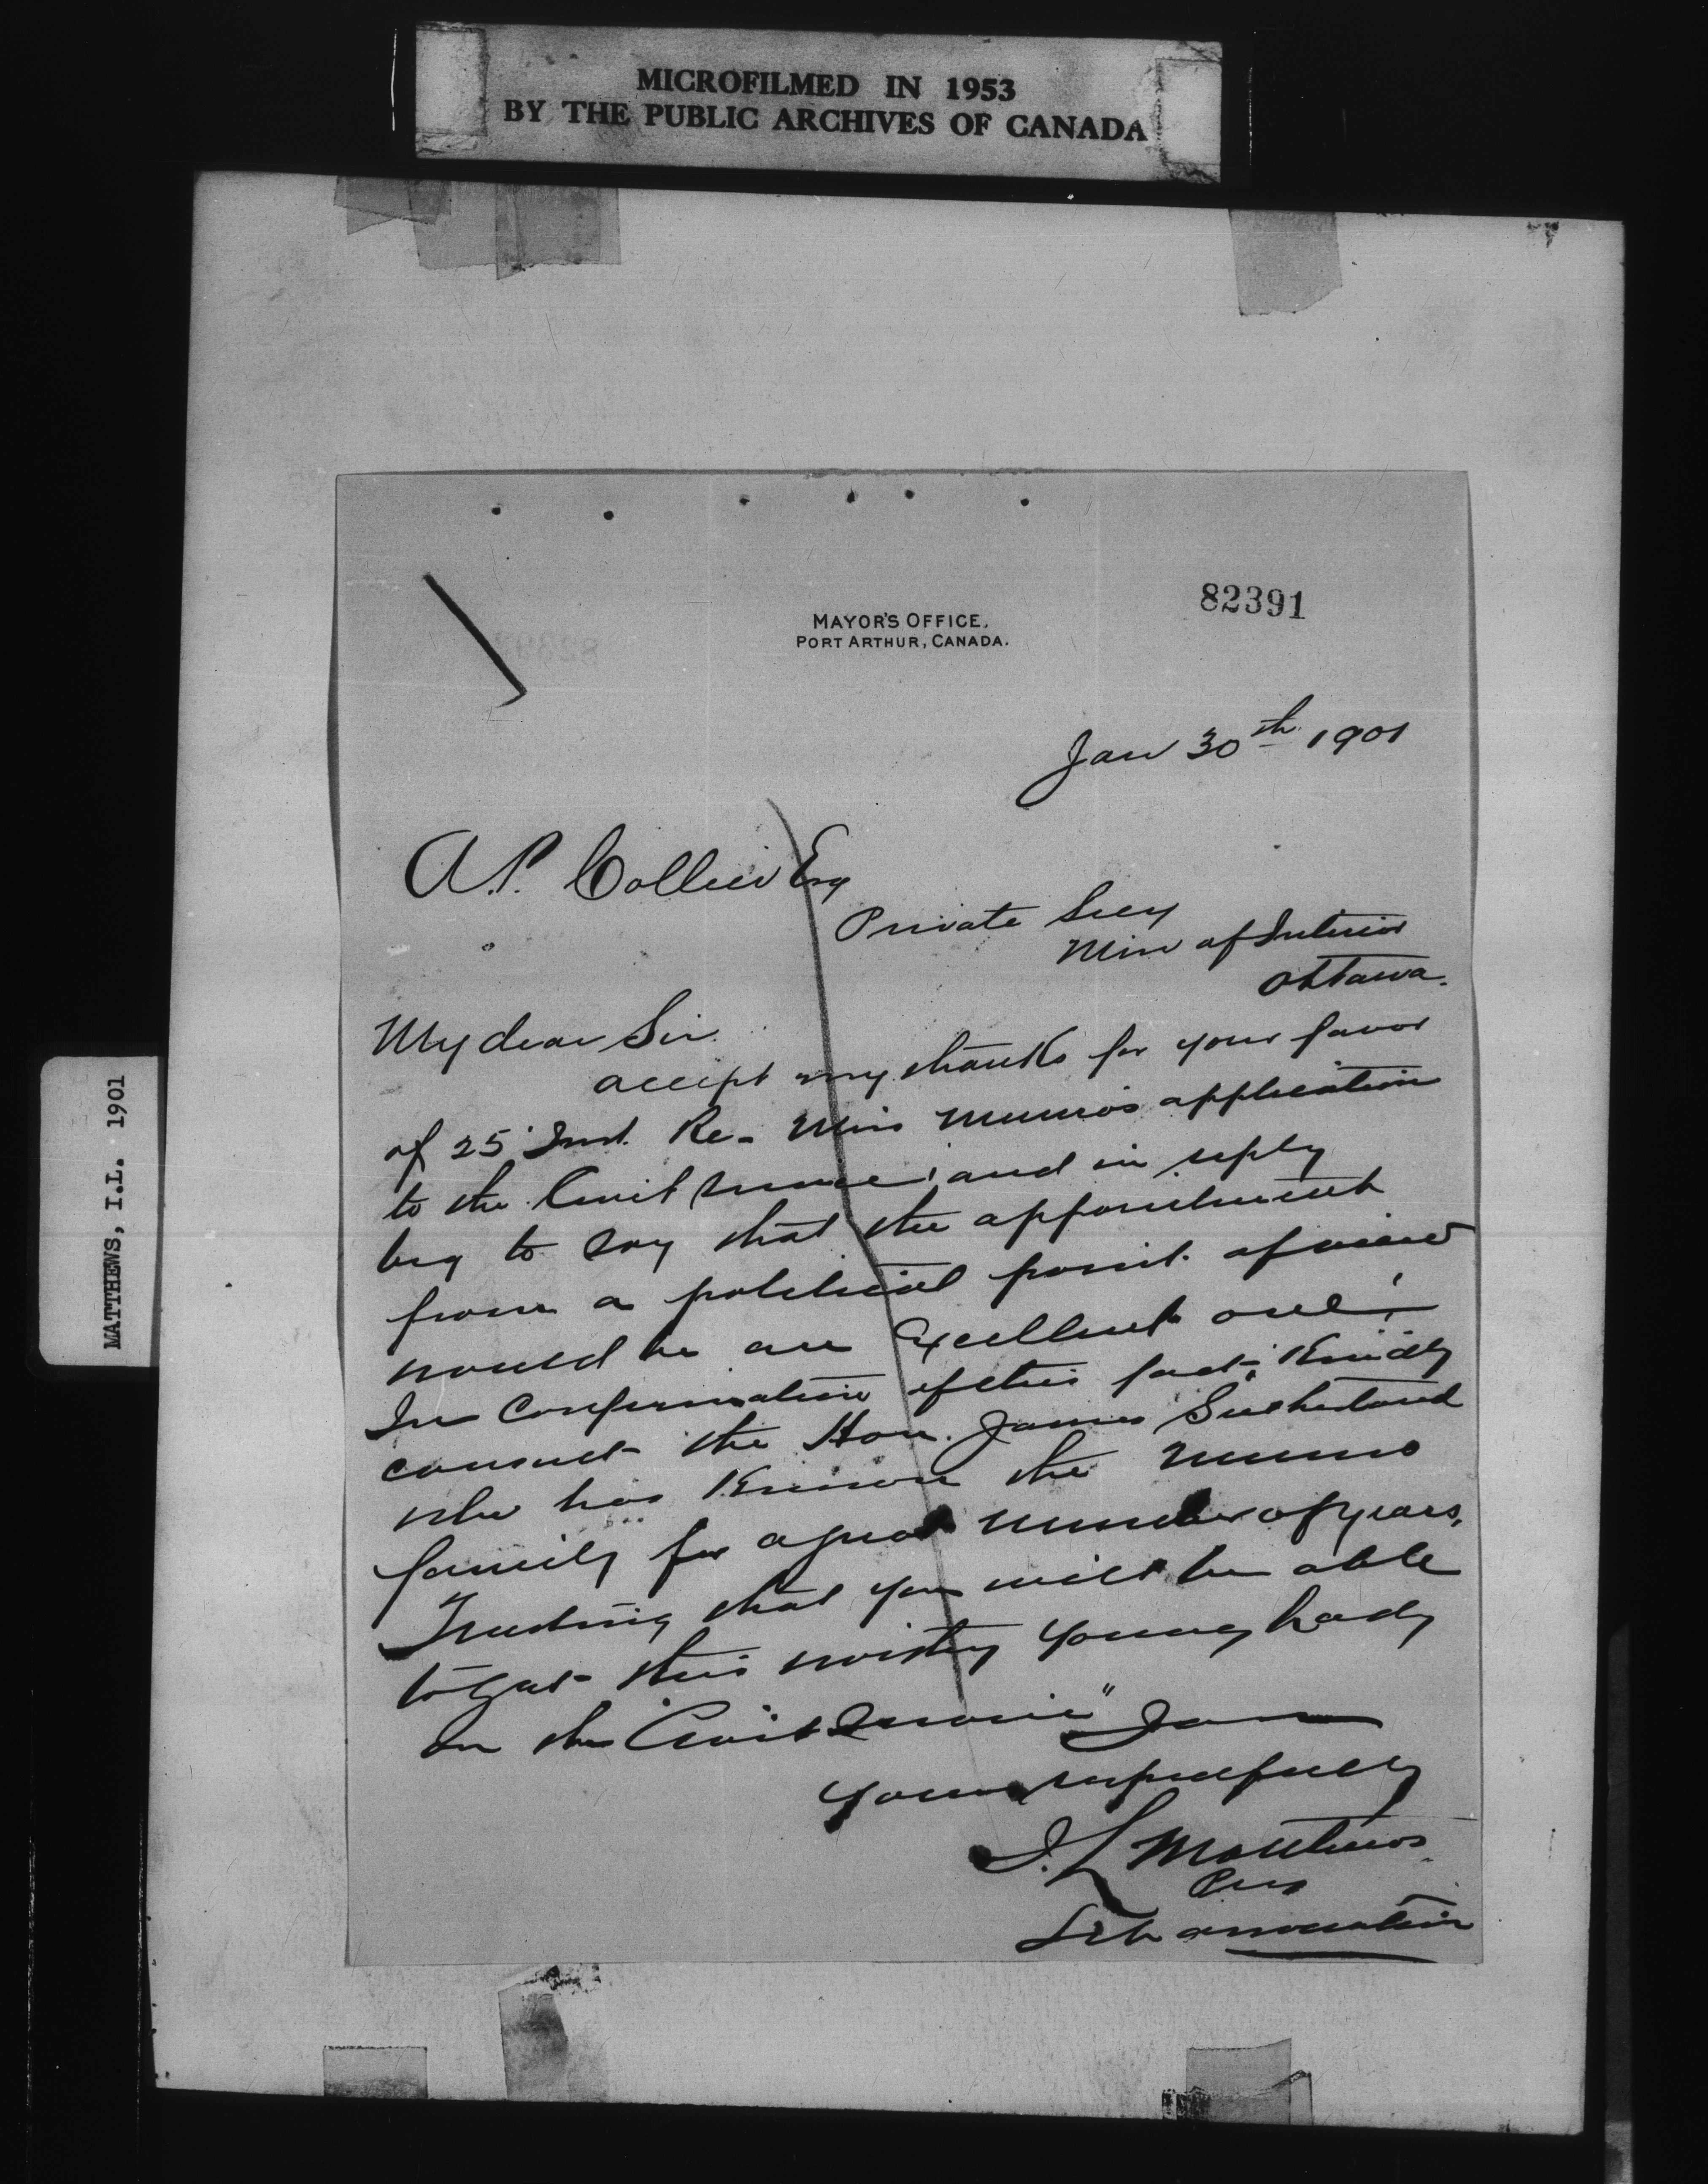 MICROFILMED IN 1953
BY THE PUBLIC ARCHIVES OF CANADA
MATTHEWS, I.L. 1901
82391
MAYOR'S OFFICE.
PORT ARTHUR, CANADA.
Jan 30th 1901
A.P. Collier Esq
Private Secy
Min of Interior
Ottawa.
My dear Sir
accept my thanks for your favor
of 25 Inst. Re- Miss Munro's application
to the Civil Service and in reply
beg to say that the appointment
from a political point of view
would be an Excellent one!
In Confirmation of this fact, Kindly
consult the Hon. James Sutherland
who has Known the Munro
family for a great number of years.
Trusting that you will be able
to get this worthy young Lady
on the "Civil Service" I am
yours respectfully
I. L. Matthews
Pres
Lib association